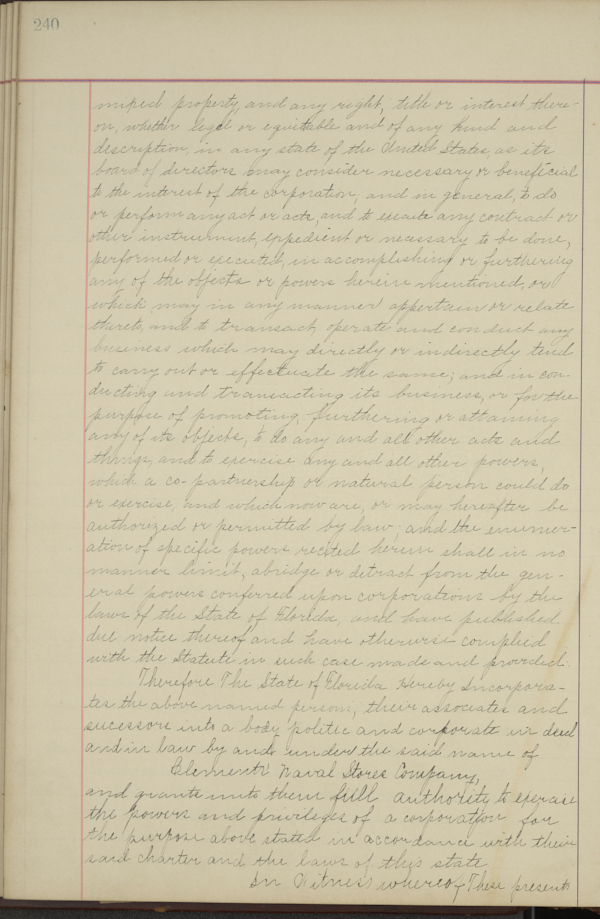 240
mixed property, and any right, title or interest there-
on, whether legal or equitable and of any kind and
description, in any state of the United States, as its
board of directors may consider necessary or beneficial
to the interest of the corporation, and in general, to do
or perform any act or acts, and to execute any contract or
other instrument, expedient or necessary to be done,
performed or executed, in accomplishing or furthering
any of the objects or powers herein mentioned, or
which may in any manner appertain or relate
thereto, and to transact, operate and conduct any
business which may directly or indirectly tend
to carry out or effectuate the same; and in con-
ducting and transacting its business, or for the
purpose of promoting, furthering or attaining
any of its objects, to do any and all other acts and
things, and to exercise any and all other powers,
which a co-partnership or natural person could do
or exercise, and which now are, or may hereafter be
authorized or permitted by law; and the enumer-
ation of specific powers recited herein shall in no
manner limit, abridge or detract from the gen-
eral powers conferred upon corporations by the
laws of the State of Florida, and have published
due notice thereof and have otherwise complied
with the Statute in such case made and provided.
Therefore The State of Florida Hereby Incorpora-
tes the above named persons, their associates and
sucessors into a body politic and corporate in deed
and in law by and under the said name of
Clements Naval Stores Company,
and grants unto them full authority to exercise
the powers and privileges of a corporation for
the purpose above stated in accordance with their
said charter and the laws of this state
In Witness whereof These presents